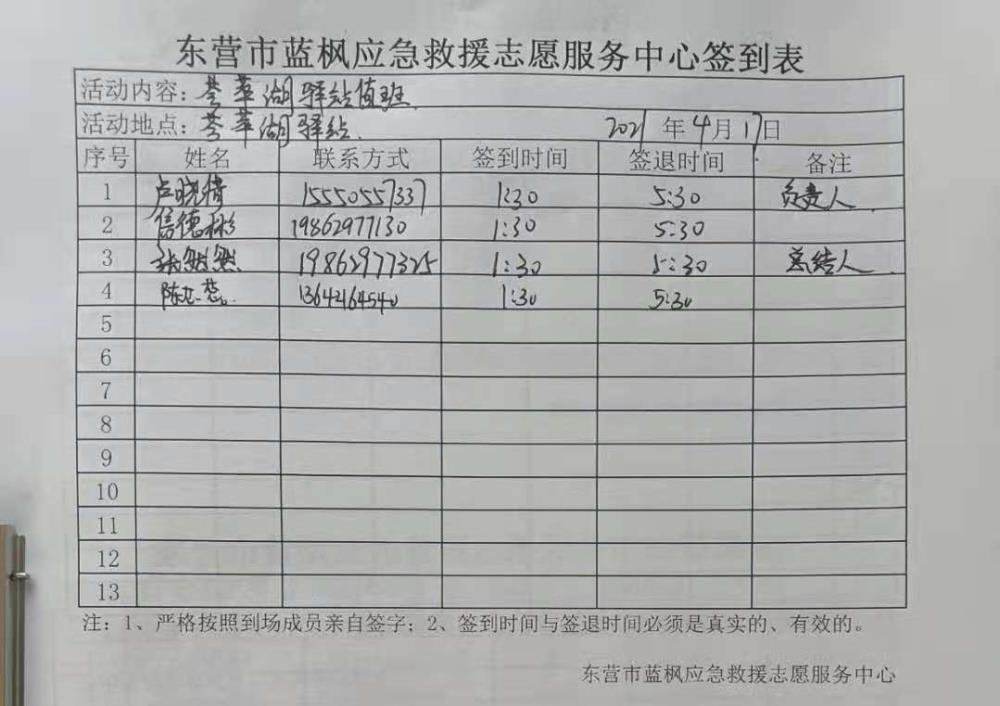 东营市蓝枫应急救援志愿服务中心签到表
活动内容：荟萃湖驿站值班
活动地点：荟萃湖驿站 2021年4月17日
序号 姓名 联系方式 签到时间 签退时间 备注
1 卢晓倩 15550557337 1:30 5:30 负责人
2 信德彬 19862977130 1:30 5:30
3 张然然 19862977325 1:30 5:30 总结人
4 陈 13642164540 1:30 5:30
5
6
7
8
9
10
11
12
13
注：1、严格按照到场成员亲自签字；2、签到时间与签退时间必须是真实的、有效的。
东营市蓝枫应急救援志愿服务中心